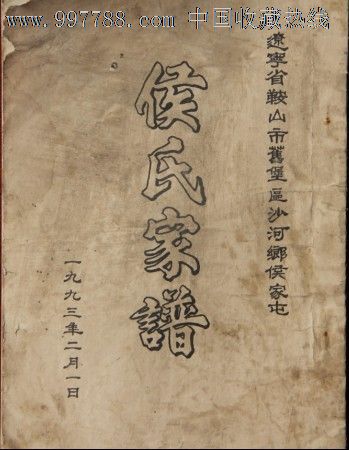 www.997788.com 中国收藏热线
遼寧省鞍山市舊堡區沙河鄉侯家屯
侯氏家譜
一九九三年二月一日